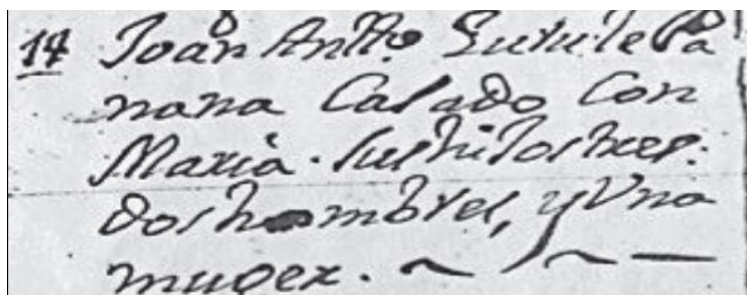 14 Joan Antto. Sututepa
nana Casado Con
Maria. sus hijos tres:
dos hombres, y Una
muger. ~ / ~ —